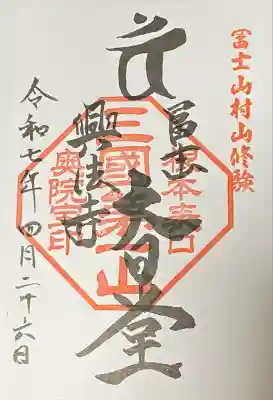 冨士山村山修験
冨士
大日堂
興法寺
令和七年四月二十六日
根本表口
三國第一山
奥院宝印